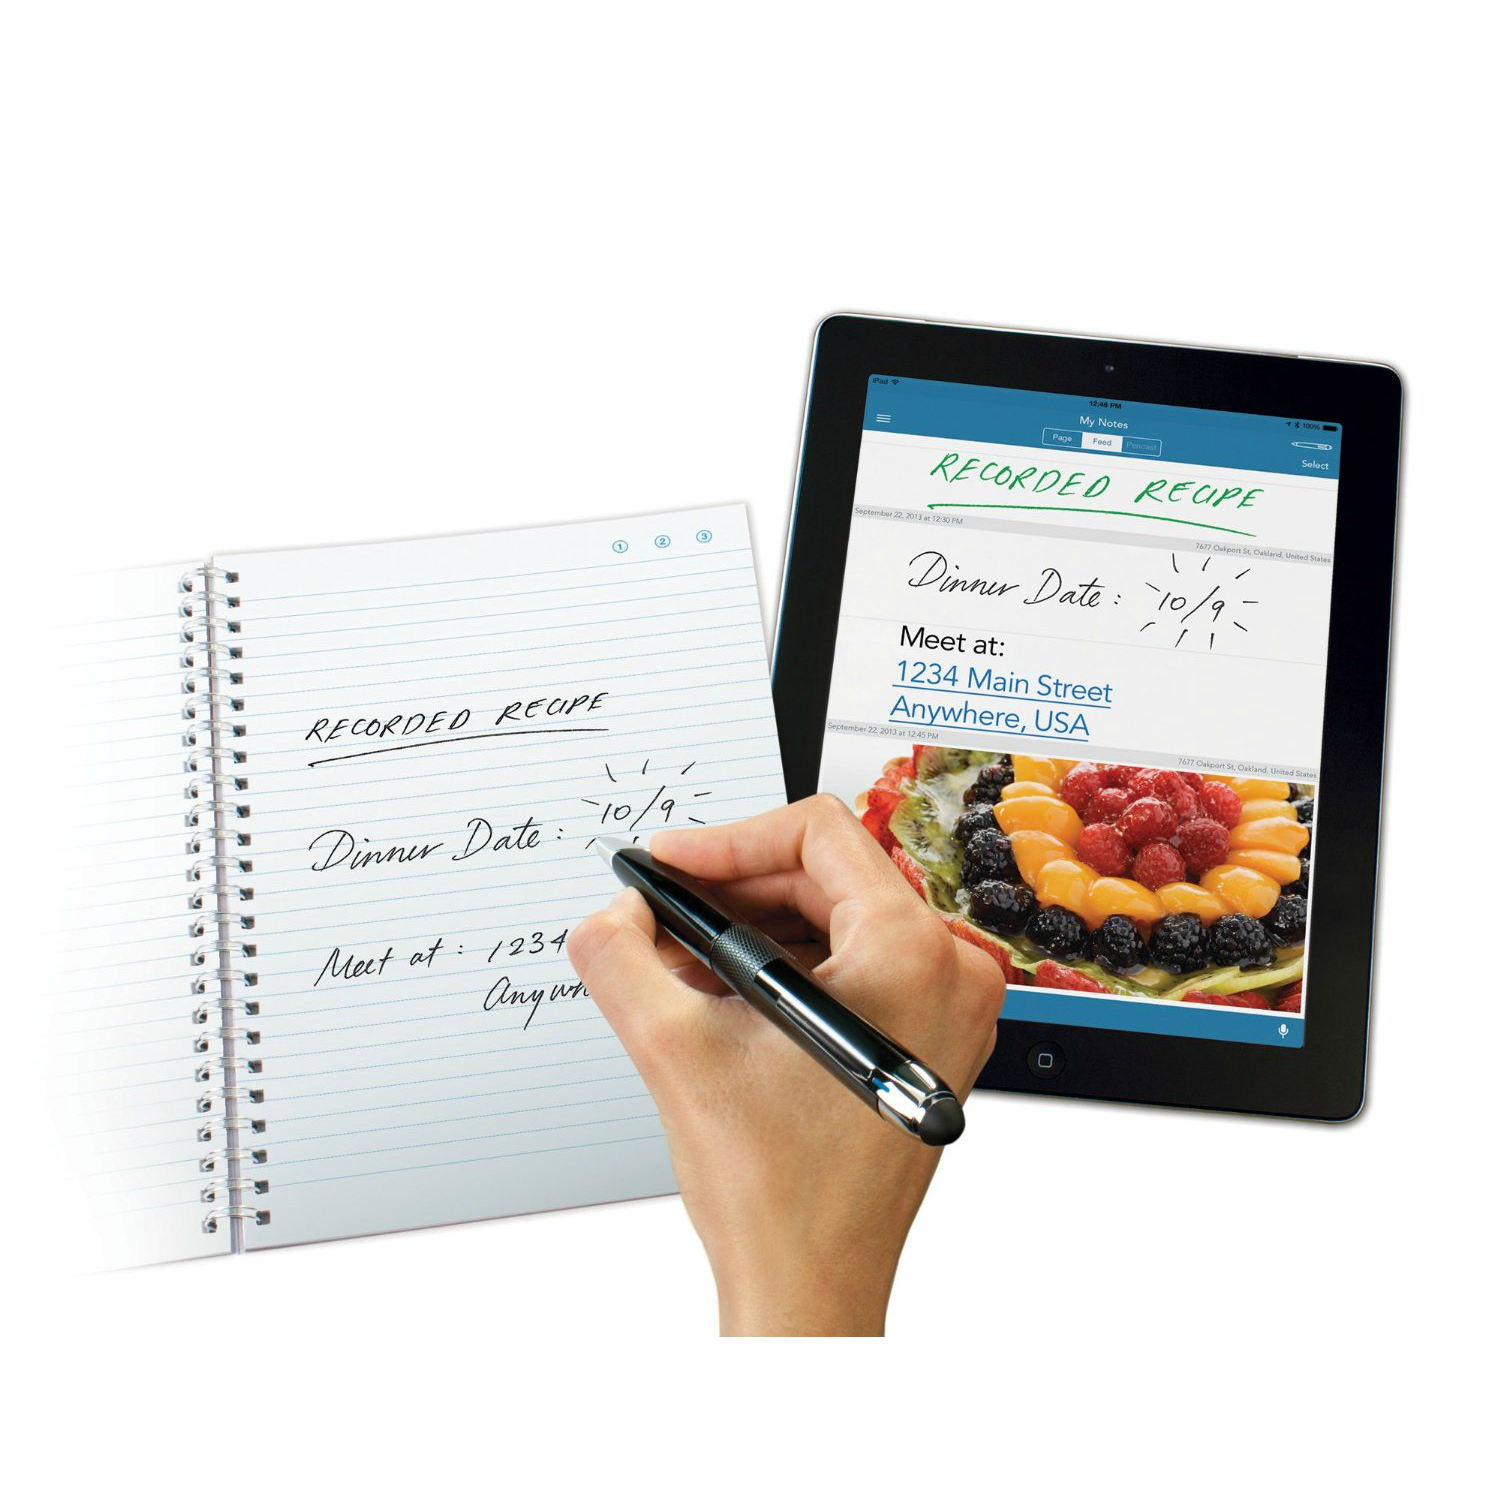 1 2 3
RECORDED RECIPE
Dinner Date: 10/9
Meet at: 1234
Anywh
iPad
12:46 PM
100%
My Notes
Page Feed Pencast
Select
RECORDED RECIPE
September 22, 2013 at 12:30 PM
7677 Oakport St, Oakland, United States
Dinner Date: 10/9
Meet at:
1234 Main Street
Anywhere, USA
September 22, 2013 at 12:45 PM
7677 Oakport St, Oakland, United States